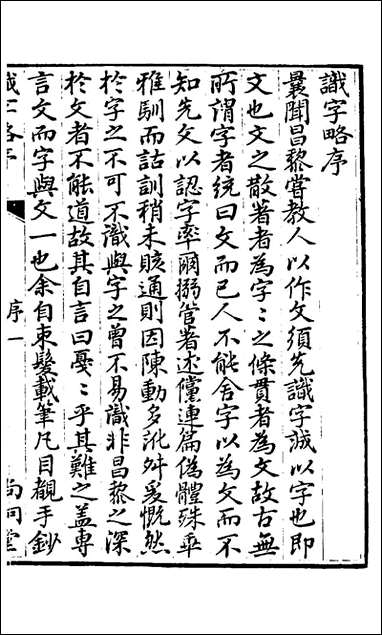 識字略序
曩聞昌黎嘗教人以作文須先識字誠以字也即
文也文之散著者為字〻之條貫者為文故古無
所謂字者統曰文而已人不能舍字以為文而不
知先文以認字率爾搦管著述儻連篇偽體殊乖
雅馴而詁訓稍未賅通則因陳動多訛舛爰慨然
於字之不可不識與字之曾不易識非昌黎之深
於文者不能道故其自言曰戞〻乎其難之蓋專
言文而字與文一也余自束髮載筆凡目覩手鈔
序一
尚同堂